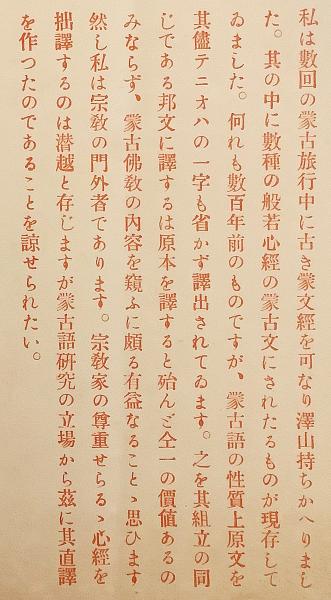 私は數回の蒙古旅行中に古き蒙文經を可なり澤山持ちかへりまし
た。其の中に數種の般若心經の蒙古文にされたるものが現存して
ゐました。何れも數百年前のものですが、蒙古語の性質上原文を
其儘テニオハの一字も省かず譯出されてゐます。之を其組立の同
じである邦文に譯するは原本を譯すると殆んど仝一の價値あるの
みならず、蒙古佛敎の內容を窺ふに頗る有益なることゝ思ひます
然し私は宗敎の門外者であります。宗敎家の尊重せらるゝ心經を
拙譯するのは潜越と存じますが蒙古語硏究の立場から茲に其直譯
を作つたのであることを諒せられたい。